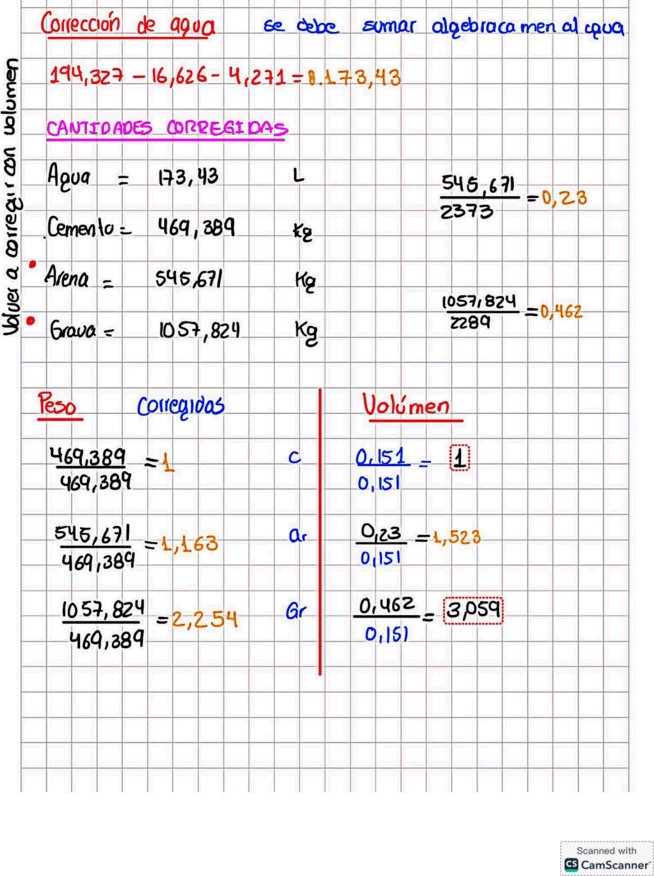 Corrección de agua se debe sumar algebraca men al agua
194,327 - 16,626 - 4,271 = 0.173,43
CANTIDADES CORREGIDAS
Volver a corregir con volumen
Agua = 173,43 L
Cemento = 469,389 kg
Arena = 545,671 Kg
Grava = 1057,824 Kg
545,671 / 2373 = 0,23
1057,824 / 2289 = 0,462
Peso Corregidas
469,389 / 469,389 = 1 C
545,671 / 469,389 = 1,163 ar
1057,824 / 469,389 = 2,254 Gr
Volúmen
0,151 / 0,151 = 1
0,23 / 0,151 = 1,523
0,462 / 0,151 = 3,059
Scanned with
CS CamScanner